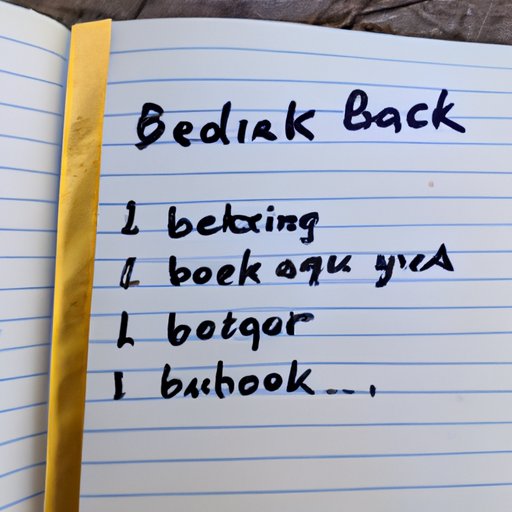 Bedirk Back
1 bekxing
1 boek aqk yred
1 botqor
1 buhook...,